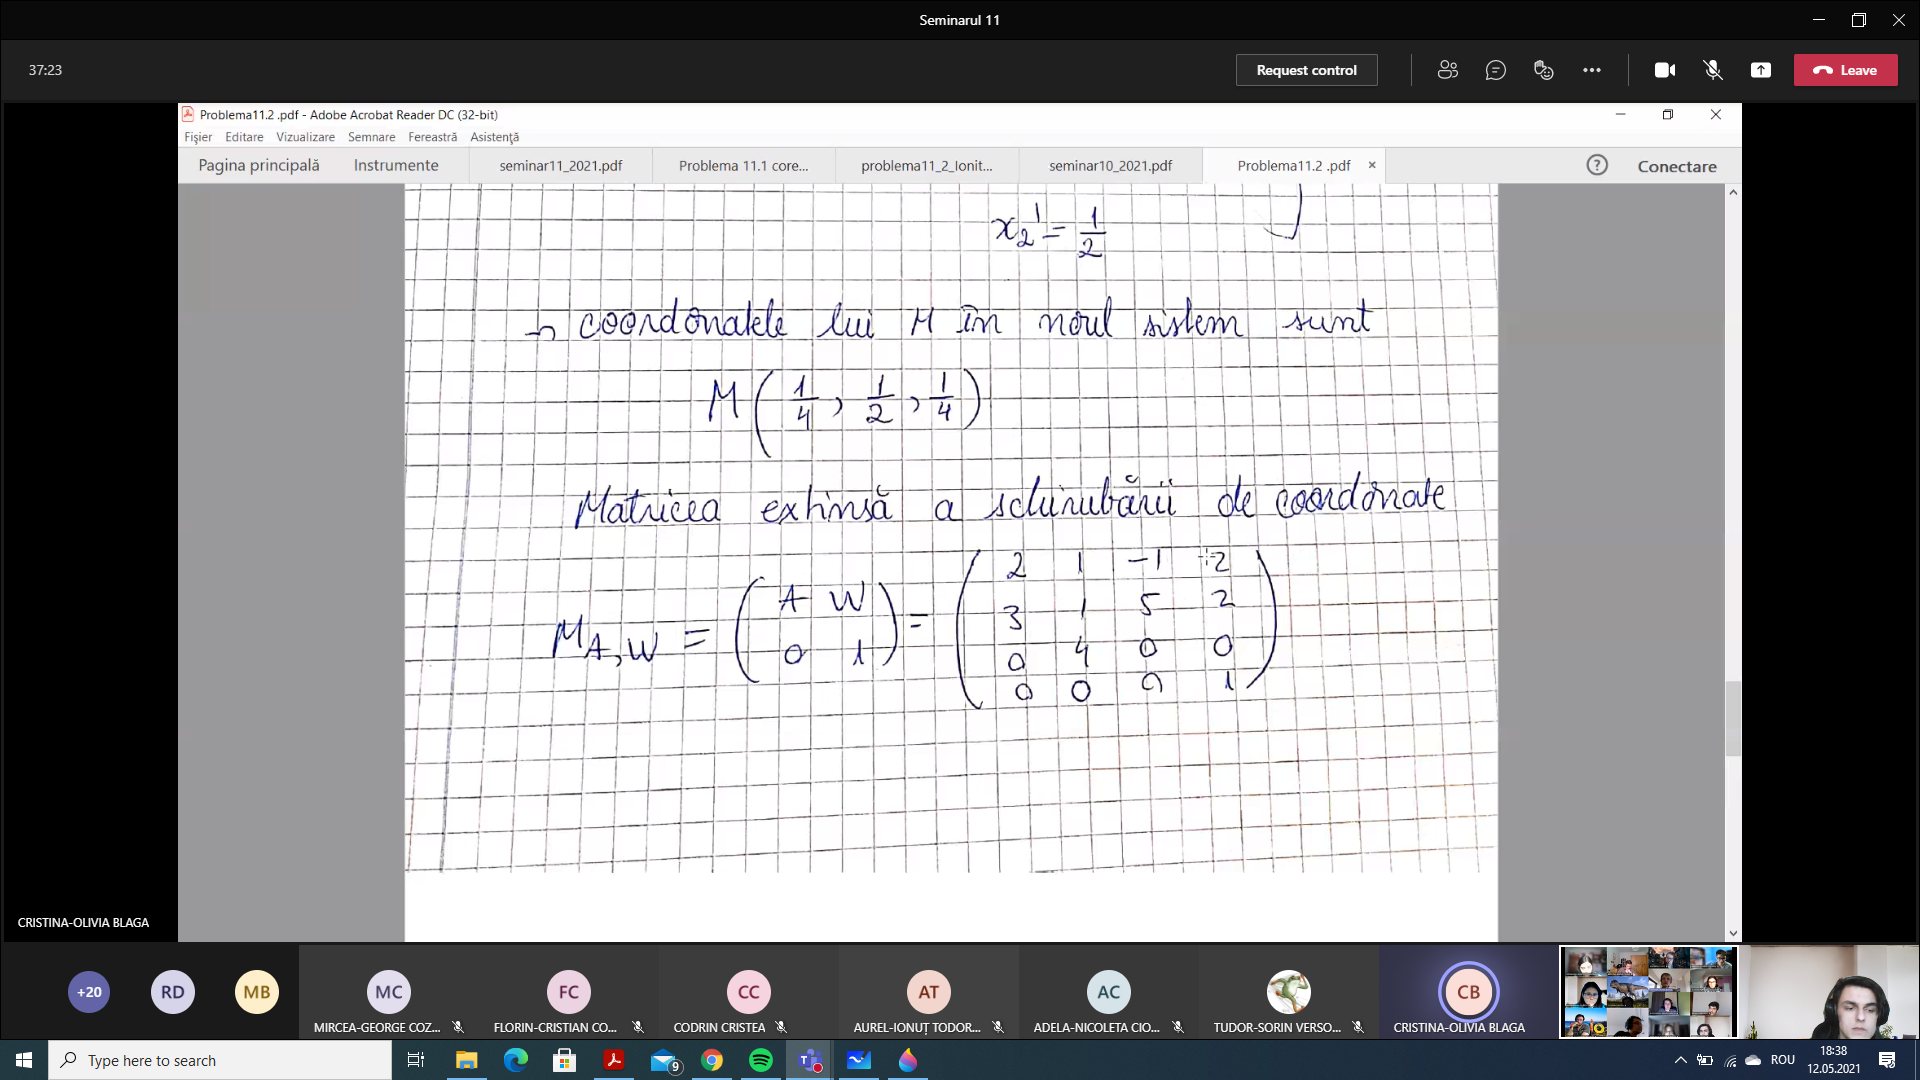 Seminarul 11
37:23
Request control
Leave
Problema11.2 .pdf - Adobe Acrobat Reader DC (32-bit)
Fișier Editare Vizualizare Semnare Fereastră Asistență
Pagina principală Instrumente seminar11_2021.pdf Problema 11.1 core... problema11_2_Ionit... seminar10_2021.pdf Problema11.2 .pdf × ? Conectare
x₂' = 1/2
→ coordonatele lui M în noul sistem sunt
M(1/4, 1/2, 1/4)
Matricea extinsă a schimbării de coordonate
2 1 -1 2
3 1 5 2
M_{A,W} = (A W; 0 1) =
0 4 0 0
0 0 0 1
CRISTINA-OLIVIA BLAGA
+20 RD MB MC FC CC AT AC CB
MIRCEA-GEORGE COZ... FLORIN-CRISTIAN CO... CODRIN CRISTEA AUREL-IONUȚ TODOR... ADELA-NICOLETA CIO... TUDOR-SORIN VERSO... CRISTINA-OLIVIA BLAGA
Type here to search
9
ROU
18:38
12.05.2021